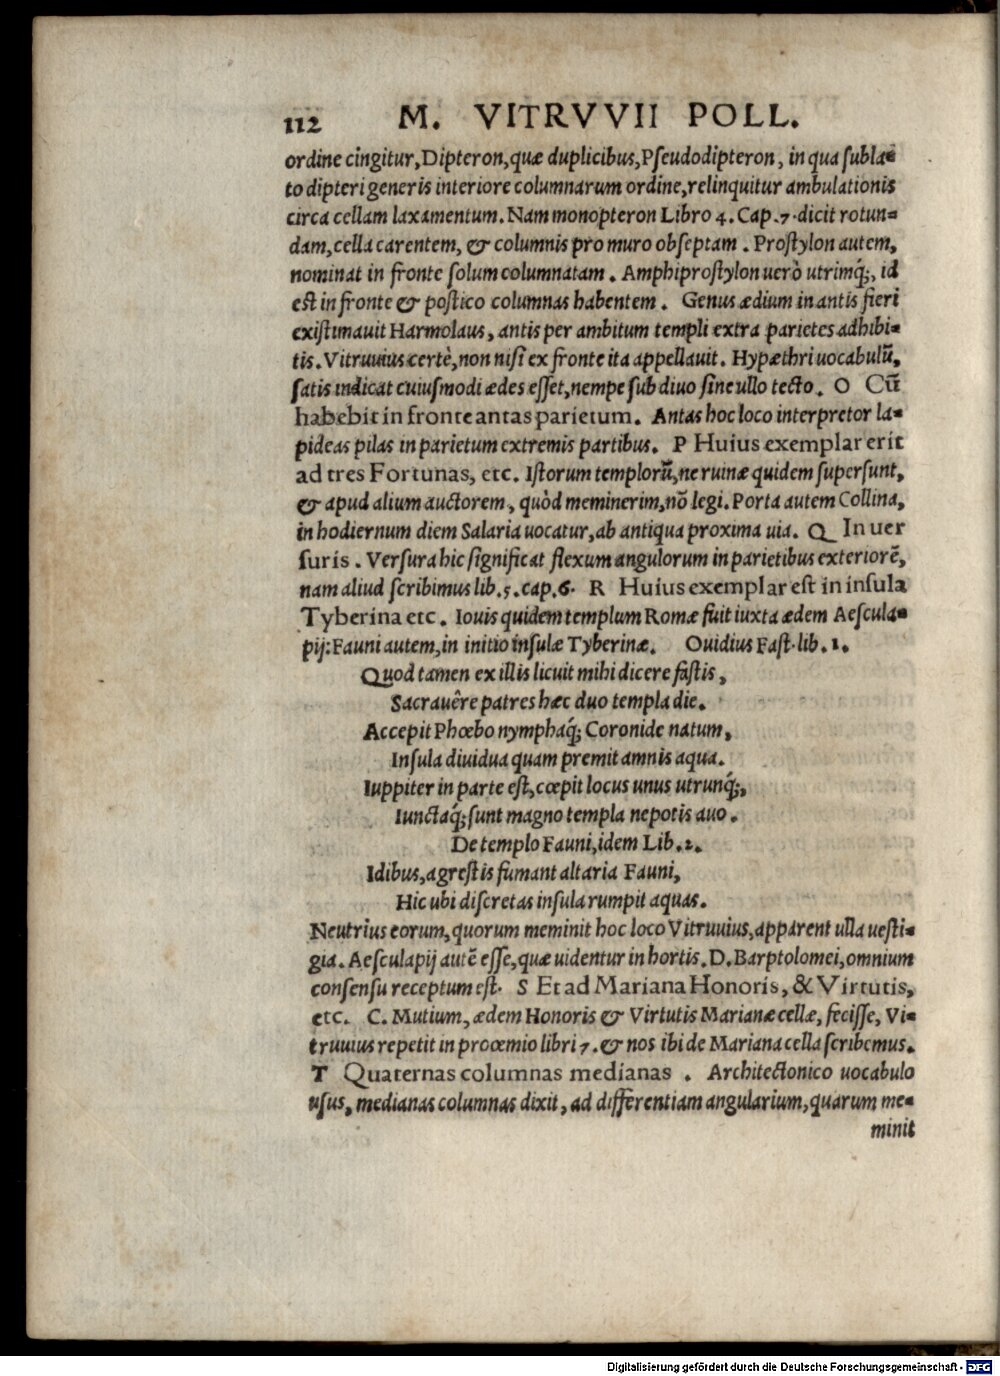 112 M. VITRVVII POLL.
ordine cingitur, Dipteron, quæ duplicibus, Pseudodipteron, in qua subla=
to dipteri generis interiore columnarum ordine, relinquitur ambulationis
circa cellam laxamentum. Nam monopteron Libro 4. Cap. 7. dicit rotun=
dam, cella carentem, & columnis pro muro obseptam. Prostylon autem,
nominat in fronte solum columnatam. Amphiprostylon uerò utrimq́;, id
est in fronte & postico columnas habentem. Genus ædium in antis fieri
existimauit Harmolaus, antis per ambitum templi extra parietes adhibi=
tis. Vitruuius certè, non nisi ex fronte ita appellauit. Hypæthri uocabulū,
satis indicat cuiusmodi ædes esset, nempe sub diuo sine ullo tecto. O Cū
habebit in fronte antas parietum. Antas hoc loco interpretor la=
pideas pilas in parietum extremis partibus. P Huius exemplar erit
ad tres Fortunas, etc. Istorum templorū, ne ruinæ quidem supersunt,
& apud alium auctorem, quòd meminerim, nō legi. Porta autem Collina,
in hodiernum diem Salaria uocatur, ab antiqua proxima uia. Q In uer
suris. Versura hic significat flexum angulorum in parietibus exteriorē,
nam aliud scribimus lib. 5. cap. 6. R Huius exemplar est in insula
Tyberina etc. Iouis quidem templum Romæ fuit iuxta ædem Aescula=
pij: Fauni autem, in initio insulæ Tyberinæ. Ouidius Fast. lib. 1.
Quod tamen ex illis licuit mihi dicere fastis,
Sacrauêre patres hæc duo templa die.
Accepit Phœbo nymphaq́; Coronide natum,
Insula diuidua quam premit amnis aqua.
Iuppiter in parte est, cœpit locus unus utrunq́;,
Iunctaq́; sunt magno templa nepotis auo.
De templo Fauni, idem Lib. 2.
Idibus, agrestis fumant altaria Fauni,
Hic ubi discretas insula rumpit aquas.
Neutrius eorum, quorum meminit hoc loco Vitruuius, apparent ulla uesti=
gia. Aesculapij autē esse, quæ uidentur in hortis. D. Barptolomei, omnium
consensu receptum est. S Et ad Mariana Honoris, & Virtutis,
etc. C. Mutium, ædem Honoris & Virtutis Marianæ cellæ, fecisse, Vi=
truuius repetit in proœmio libri 7. & nos ibi de Mariana cella scribemus.
T Quaternas columnas medianas. Architectonico uocabulo
usus, medianas columnas dixit, ad differentiam angularium, quarum me=
minit
Digitalisierung gefördert durch die Deutsche Forschungsgemeinschaft - DFG